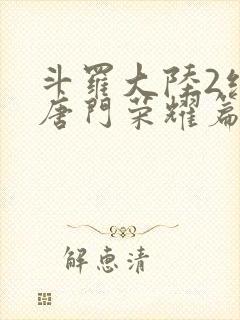 斗羅大陸2
唐門榮耀篇
解惠清